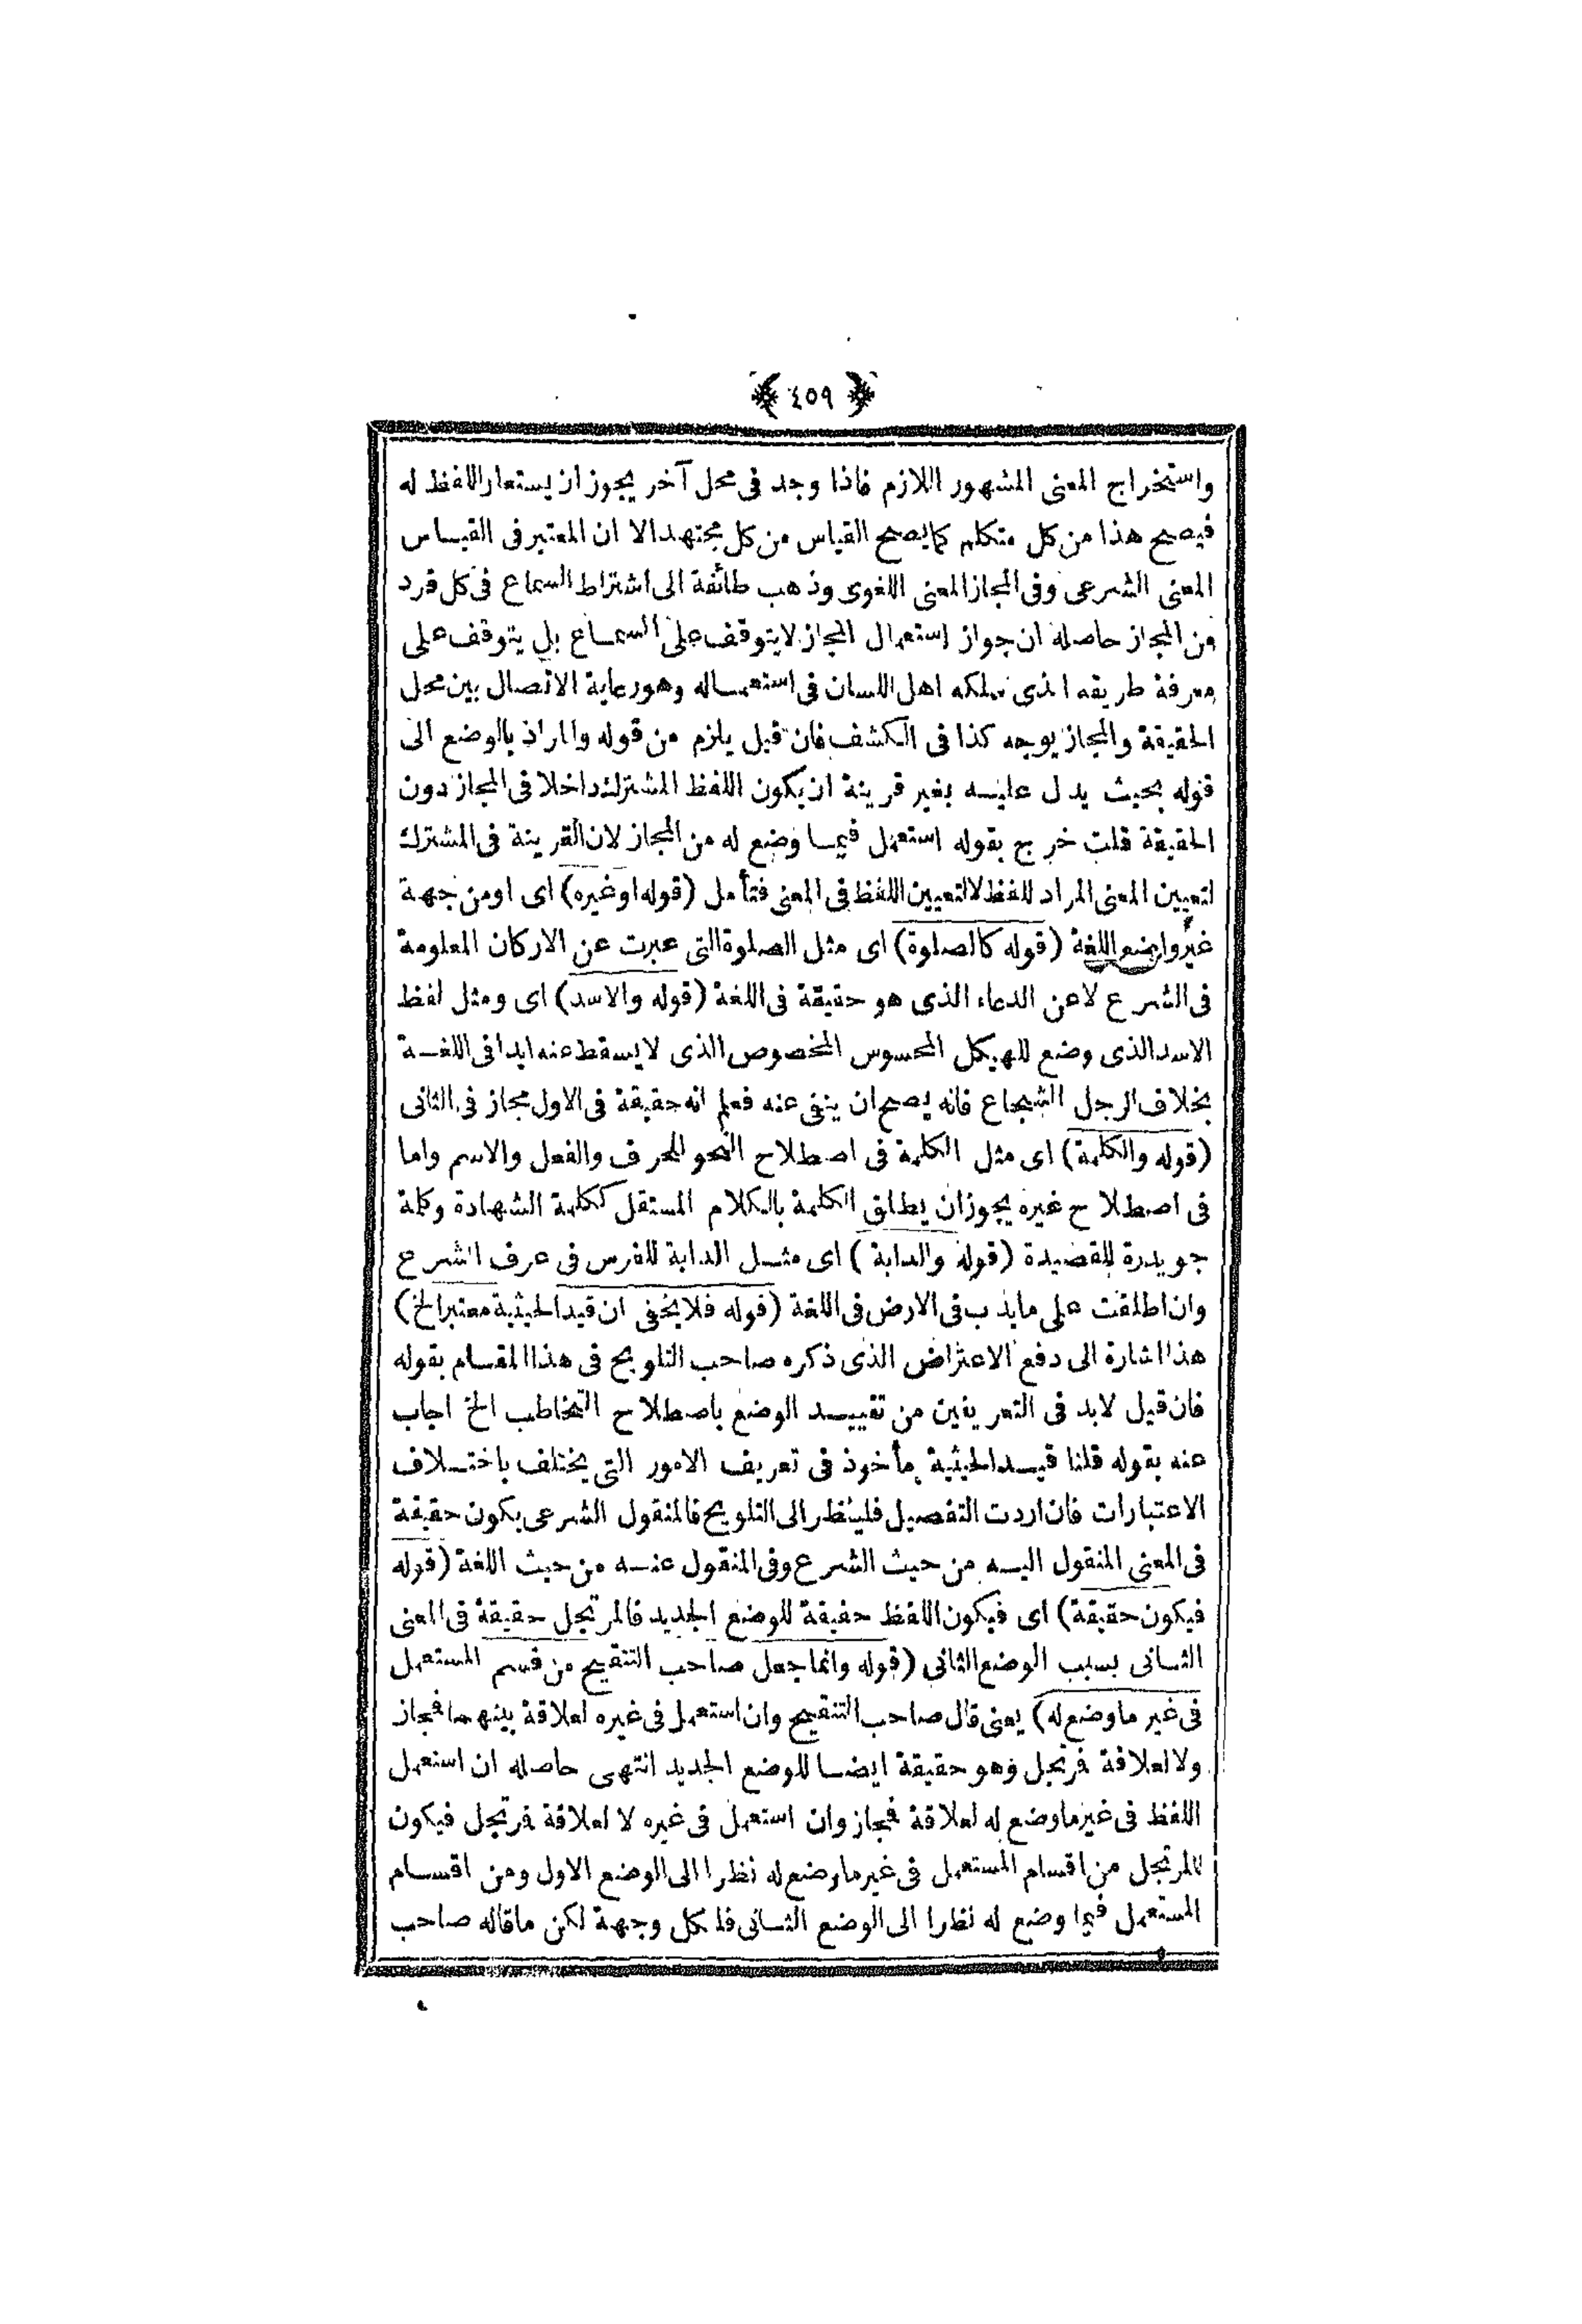 ﴿ ٤٥٩ ﴾
واستخراج المعنى المشهور اللازم فاذا وجد فى محل آخر يجوز ان يستعار اللفظ له
فيصح هذا من كل متكلم كما يصح القياس من كل مجتهد الا ان المعتبر فى القياس
المعنى الشرعى وفى المجاز المعنى اللغوى وذهب طائفة الى اشتراط السماع فى كل فرد
من المجاز حاصله ان جواز استعمال المجاز لا يتوقف على السماع بل يتوقف على
معرفة طريقه الذى سلكه اهل اللسان فى استعماله وهو رعاية الاتصال بين محل
الحقيقة والمجاز بوجه كذا فى الكشف فان قيل يلزم من قوله والمراد بالوضع الى
قوله بحيث يدل عليه بغير قرينة ان يكون اللفظ المشترك داخلا فى المجاز دون
الحقيقة قلت خرج بقوله استعمل فيما وضع له من المجاز لان القرينة فى المشترك
لتعيين المعنى المراد للفظ لا لتعيين اللفظ فى المعنى فتأمل (قوله او غيره) اى او من جهة
غير واضع اللغة (قوله كالصلوة) اى مثل الصلوة التى عبرت عن الاركان المعلومة
فى الشرع لا عن الدعاء الذى هو حقيقة فى اللغة (قوله والاسد) اى ومثل لفظ
الاسد الذى وضع للهيكل المحسوس المخصوص الذى لا يسقط عنه ابدا فى اللغة
بخلاف الرجل الشجاع فانه يصح ان ينفى عنه فعلم انه حقيقة فى الاول مجاز فى الثانى
(قوله والكلمة) اى مثل الكلمة فى اصطلاح النحو للحرف والفعل والاسم واما
فى اصطلاح غيره يجوز ان يطلق الكلمة بالكلام المستقل ككلمة الشهادة وكلمة
جويدرة للقصيدة (قوله والدابة) اى مثل الدابة للفرس فى عرف الشرع
وان اطلقت على ما يذب فى الارض فى اللغة (قوله فلا يخفى ان قيد الحيثية معتبر الخ)
هذا اشارة الى دفع الاعتراض الذى ذكره صاحب التلويح فى هذا المقام بقوله
فان قيل لابد فى التعريفين من تقييد الوضع باصطلاح التخاطب الخ اجاب
عنه بقوله قلنا قيد الحيثية مأخوذ فى تعريف الامور التى يختلف باختلاف
الاعتبارات فان اردت التفصيل فلينظر الى التلويح فالمنقول الشرعى يكون حقيقة
فى المعنى المنقول اليه من حيث الشرع وفى المنقول عنه من حيث اللغة (قوله
فيكون حقيقة) اى فيكون اللفظ حقيقة للوضع الجديد فالمرتجل حقيقة فى المعنى
الثانى بسبب الوضع الثانى (قوله وانما جعل صاحب التنقيح من قسم المستعمل
فى غير ما وضع له) يعنى قال صاحب التنقيح وان استعمل فى غيره لعلاقة بينهما فمجاز
ولا لعلاقة فمرتجل وهو حقيقة ايضا للوضع الجديد انتهى حاصله ان استعمل
اللفظ فى غير ما وضع له لعلاقة فمجاز وان استعمل فى غيره لا لعلاقة فمرتجل فيكون
المرتجل من اقسام المستعمل فى غير ما وضع له نظرا الى الوضع الاول ومن اقسام
المستعمل فيما وضع له نظرا الى الوضع الثانى فلكل وجهة لكن ما قاله صاحب